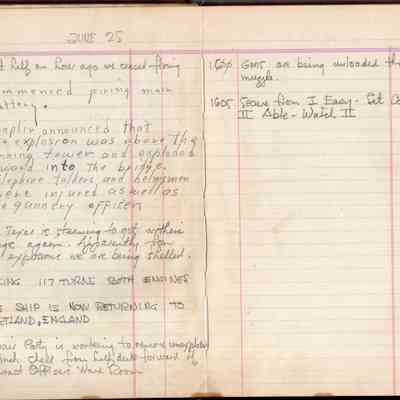 JUNE 25
half an hour ago we ceased firing
ommenced firing main
attery.
aplin announced that
e explosion was above the
nning tower and exploded
ward into the bridge.
lephone talkers and helmsmen
were injured as well as
e gunnery officer
Texas is steaming to get within
nge again. Apparently from
explosions we are being shelled.
KING 117 TURNS BOTH ENGINES
SHIP IS NOW RETURNING TO
RTLAND, ENGLAND
air Party is working to remove unexploded
inch shell from half deck forward of
Officers Ward Room
1600 Guns are being unloaded th
muzzle.
1605 Secure from I Easy - Set C
II Able - Watch II